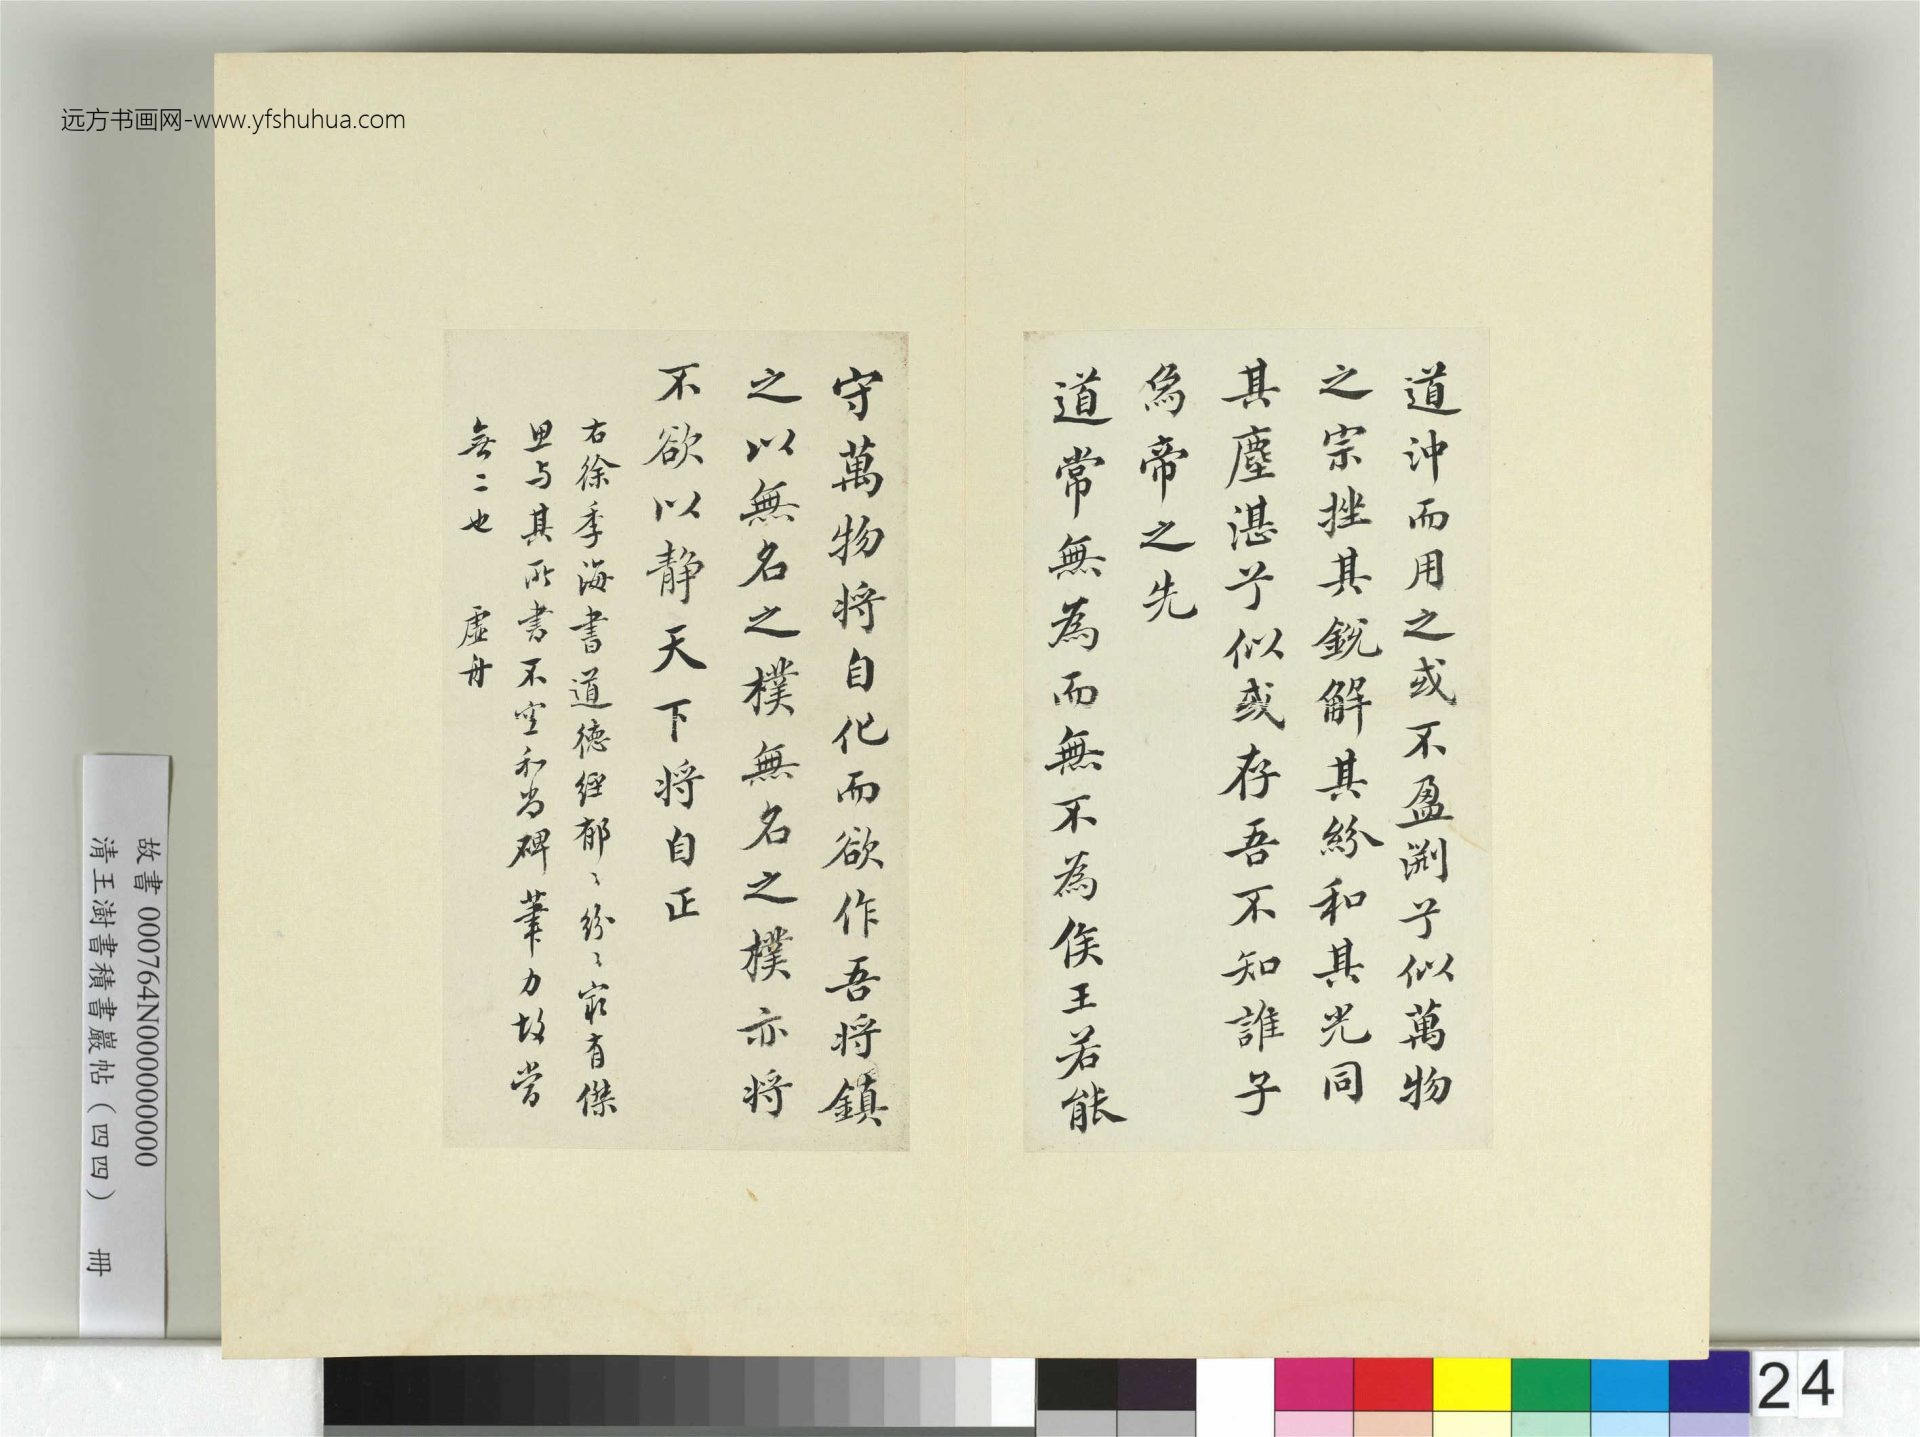 远方书画网-www.yfshuhua.com
道沖而用之或不盈淵兮似萬物
之宗挫其銳解其紛和其光同
其塵湛兮似或存吾不知誰子
為帝之先
道常無為而無不為侯王若能
守萬物將自化而欲作吾將鎮
之以無名之樸無名之樸亦將
不欲以静天下將自正
右徐季海書道德經郁〻紛〻最有傑
思与其所書不空和尚碑筆力故當
無二也 虛舟
故書 000764N000000000
清王澍書積書巖帖（四四） 冊
24